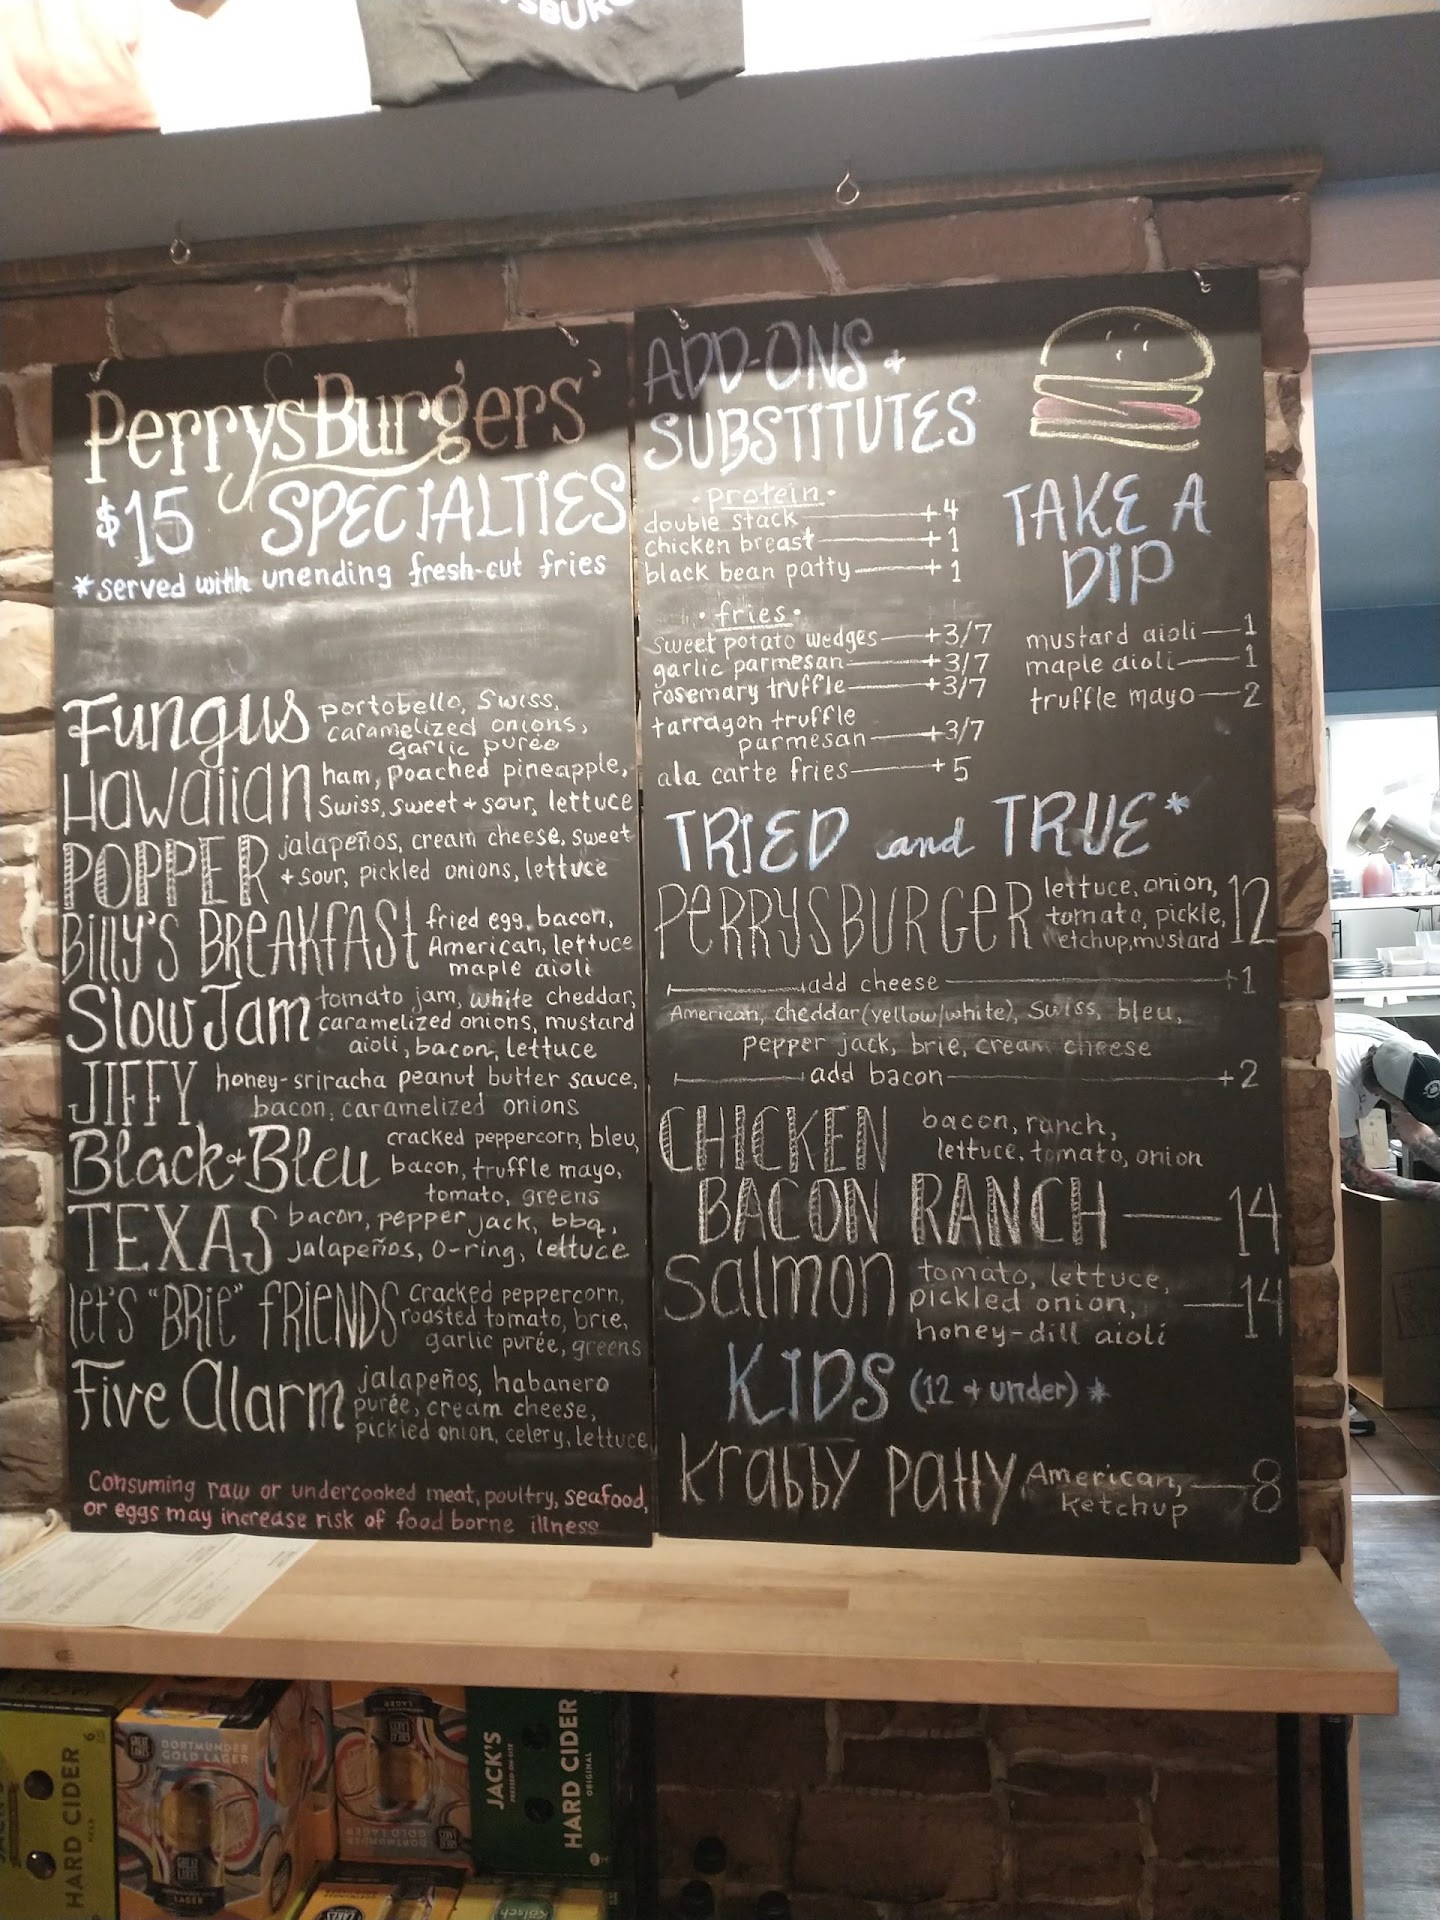 PerrysBurgers'
$15 SPECIALTIES
*served with unending fresh-cut fries
Fungus portobello, Swiss,
caramelized onions,
garlic purée
Hawaiian ham, poached pineapple,
Swiss, sweet + sour, lettuce
POPPER jalapeños, cream cheese, sweet
+ sour, pickled onions, lettuce
Billy's Breakfast fried egg, bacon,
American, lettuce
maple aioli
Slow Jam tomato jam, white cheddar,
caramelized onions, mustard
aioli, bacon, lettuce
JIFFY honey-sriracha peanut butter sauce,
bacon, caramelized onions
Black+Bleu cracked peppercorn, bleu,
bacon, truffle mayo,
tomato, greens
TEXAS bacon, pepper jack, bbq,
jalapeños, O-ring, lettuce
let's "BRIE" FRIENDS cracked peppercorn,
roasted tomato, brie,
garlic purée, greens
Five Alarm jalapeños, habanero
purée, cream cheese,
pickled onion, celery, lettuce
Consuming raw or undercooked meat, poultry, seafood,
or eggs may increase risk of food borne illness
ADD-ONS +
SUBSTITUTES
• protein •
double stack +4
chicken breast +1
black bean patty +1
• fries •
sweet potato wedges +3/7
garlic parmesan +3/7
rosemary truffle +3/7
tarragon truffle
parmesan +3/7
ala carte fries +5
TAKE A
DIP
mustard aioli 1
maple aioli 1
truffle mayo 2
TRIED and TRUE*
PERRYSBURGER lettuce, onion,
tomato, pickle, 12
ketchup, mustard
add cheese +1
American, cheddar (yellow/white), Swiss, bleu,
pepper jack, brie, cream cheese
add bacon +2
CHICKEN bacon, ranch,
lettuce, tomato, onion
BACON RANCH 14
Salmon tomato, lettuce,
pickled onion, 14
honey-dill aioli
KIDS (12 + under) *
Krabby Patty American, 8
ketchup
HARD CIDER
DORTMUNDER
GOLD LAGER
LAGER
DORTMUNDER
GOLD LAGER
JACK'S
HARD CIDER
ORIGINAL
Kölsch